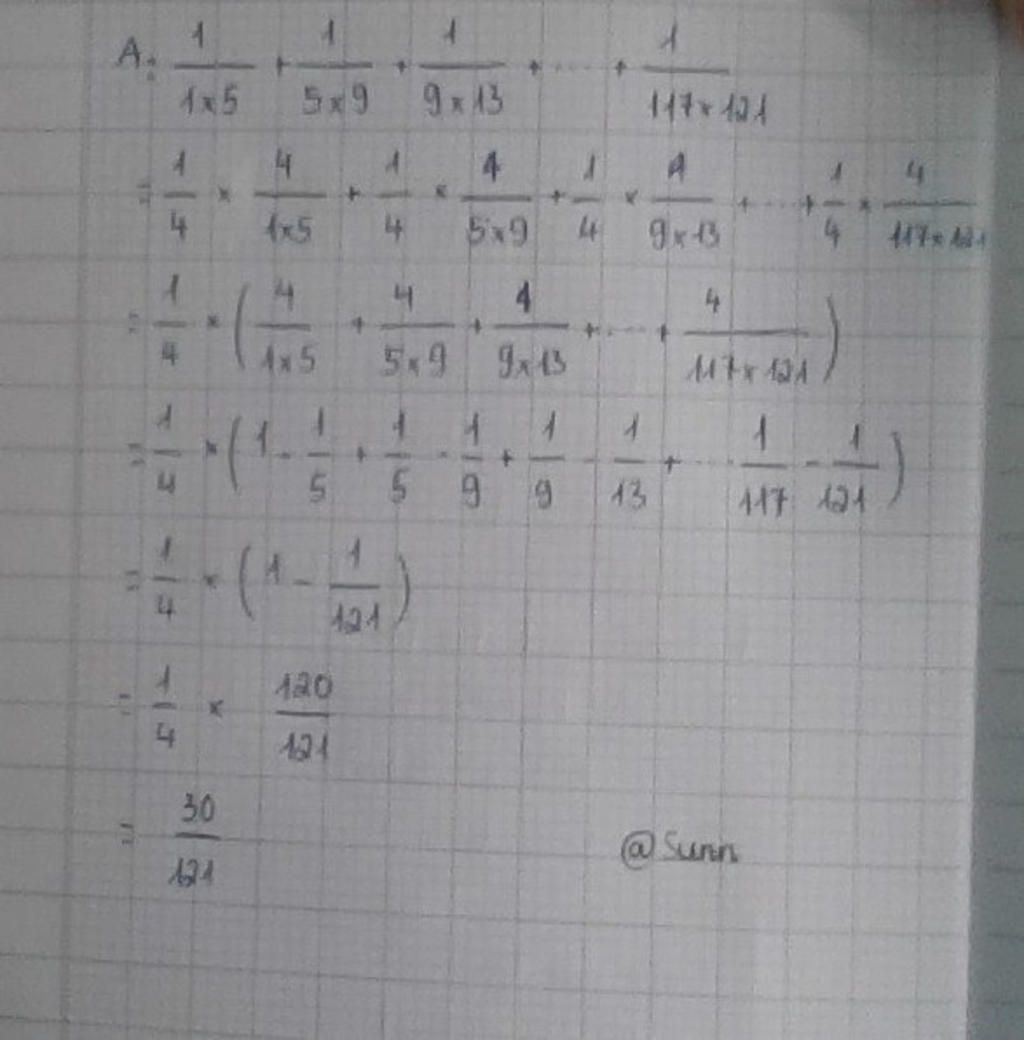 A = 1/(1×5) + 1/(5×9) + 1/(9×13) + ... + 1/(117×121)
= 1/4 × 4/(1×5) + 1/4 × 4/(5×9) + 1/4 × 4/(9×13) + ... + 1/4 × 4/(117×121)
= 1/4 × (4/(1×5) + 4/(5×9) + 4/(9×13) + ... + 4/(117×121))
= 1/4 × (1 - 1/5 + 1/5 - 1/9 + 1/9 - 1/13 + ... 1/117 - 1/121)
= 1/4 × (1 - 1/121)
= 1/4 × 120/121
= 30/121
@Sunn